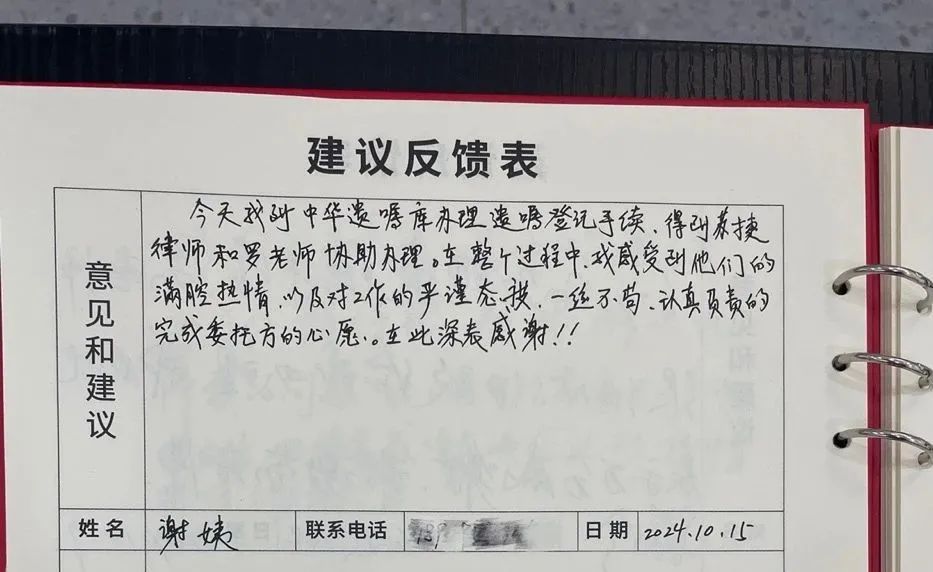 建议反馈表
意见和建议
今天我到中华遗嘱库办理遗嘱登记手续、得到苏捷
律师和罗老师协助办理。在整个过程中、我感受到他们的
满腔热情、以及对工作的严谨态度、一丝不苟、认真负责的
完成委托方的心愿、。在此深表感谢!!
姓名 谢姨 联系电话 日期 2024.10.15